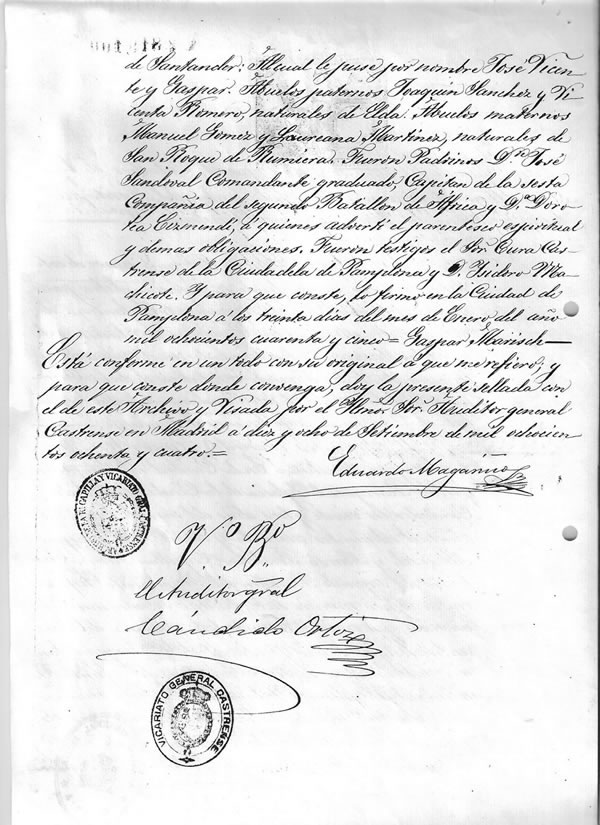 de Santander: Al cual le puse por nombre José Vicen
te y Gaspar. Abuelos paternos Joaquin Sanchez y Vi
centa Romero, naturales de Elda. Abuelos maternos
Manuel Gomez y Laureana Martinez, naturales de
San Roque de Rumiera. Fueron Padrinos Dn. José
Sandoval Comandante graduado, Capitan de la sesta
Compañia del segundo Batallon de Africa y Dª Doro
tea Eizmendi, á quienes advertí el parentesco espiritual
y demas obligaciones. Fueron testigos el Sr. Cura Cas
trense de la Ciudadela de Pamplona y D. Isidoro Ma
dicote. Y para que conste, lo firmo en la Ciudad de
Pamplona á los treinta dias del mes de Enero del año
mil ochocientos cuarenta y cinco = Gaspar Marisch =
Está conforme en un todo con su original á que me refiero; y
para que conste donde convenga, doy la presente sellada con
el de este Archivo y Visada por el Ilmo. Sr. Auditor general
Castrense en Madrid á diez y ocho de Setiembre de mil ochocien
tos ochenta y cuatro. =
Eduardo Magariño
CAPILLA Y VICARIATO GRAL CASTRENSE
Vº Bº
El Auditor gral
Cándido Ortiz
VICARIATO GENERAL CASTRENSE